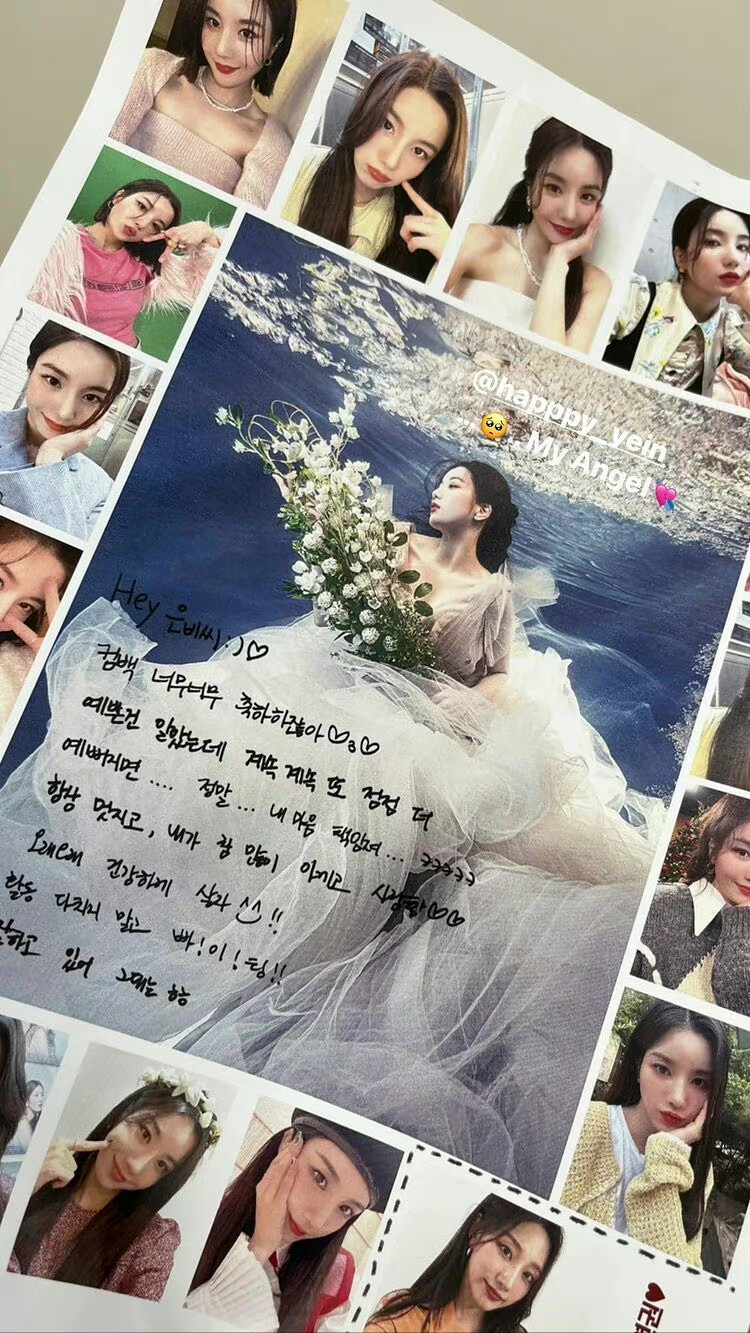 @happpy_yein
🥺 My Angel💘
Hey 은비씨:)♡
컴백 너무너무 축하하잖아♡3♡
예쁜건 알았는데 계속 계속 또 점점 더
예뻐지면.... 정말... 내 마음 책임져... ㅋㅋㅋㅋㅋ
항상 멋지고, 내가 참 많이 아끼고 사랑함♡♡
오래오래 건강하게 살자^^!!
활동 다치지 말고 빠!이!팅!!
잘하고 있어 그대는 항승